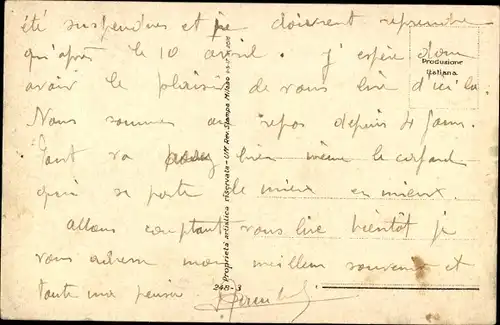 été suspendues et ne doivent reprendre
qu'après le 10 avril. J'espère donc
avoir le plaisir de vous lire d'ici là
Nous sommes au repos depuis 4 jours.
Tout va bien même le cafard
qui se porte de mieux en mieux.
Allons comptant vous lire bientôt je
vous adresse mon meilleur souvenir et
toute ma pensée
Produzione
Italiana
Proprietà artistica riservata - Uff. Rev. Stampa Milano
248-3